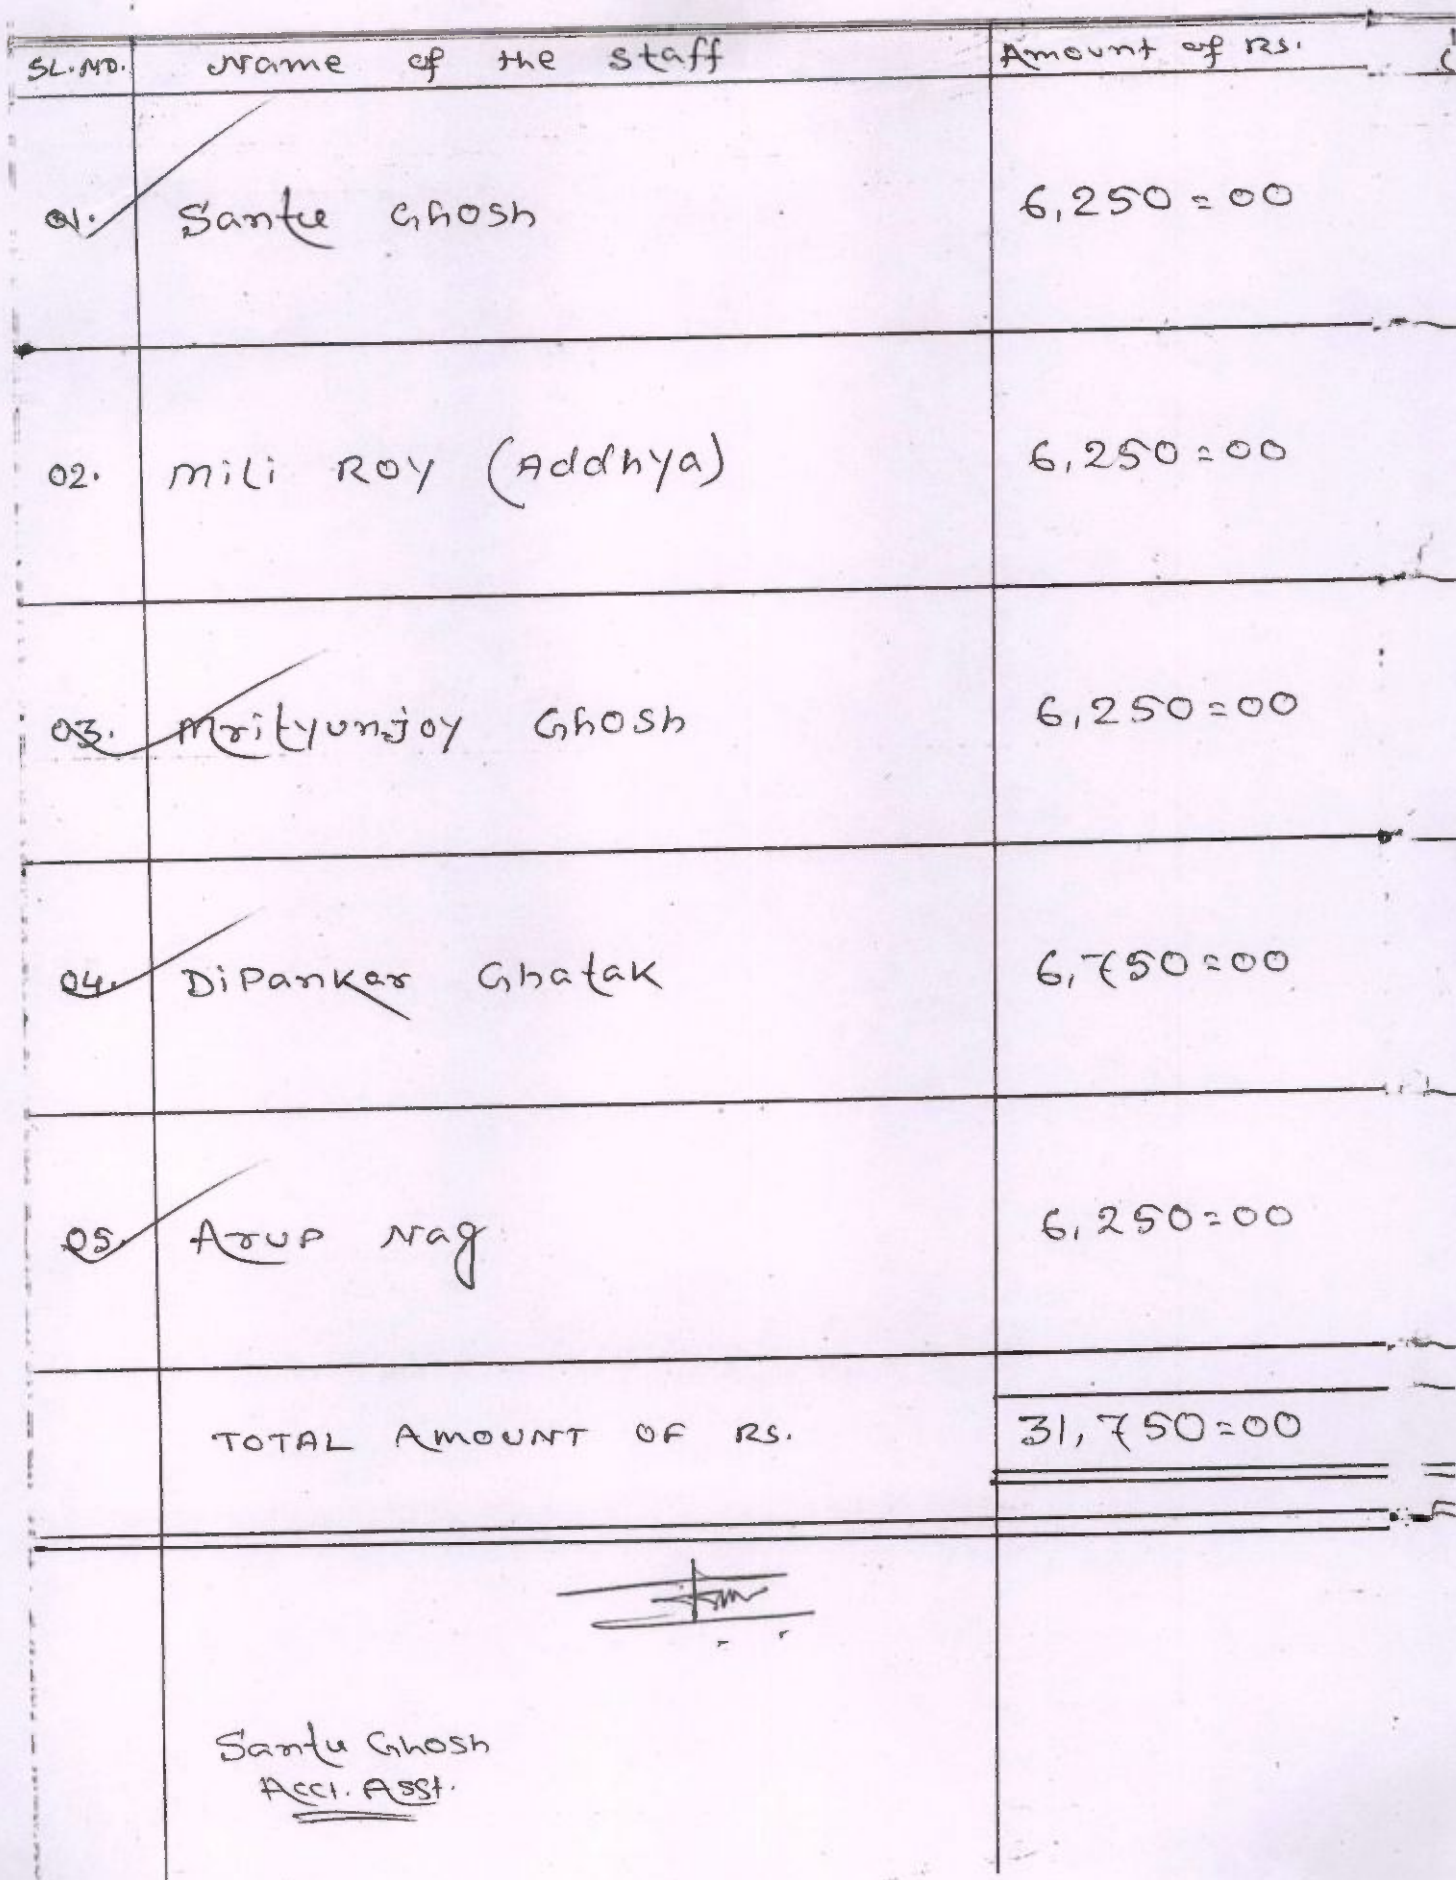 SL.NO. Name of the Staff Amount of Rs.
01. Santu Ghosh 6,250=00
02. Mili Roy (Addhya) 6,250=00
03. Mrityunjoy Ghosh 6,250=00
04. Dipankar Ghatak 6,750=00
05. Arup Nag 6,250=00
TOTAL AMOUNT OF RS. 31,750=00
Santu Ghosh
Acct. Asst.